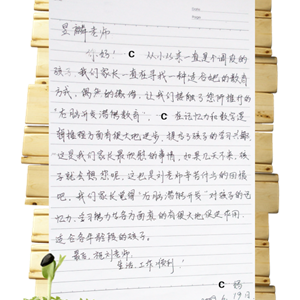 昱麟老师
你好！ C 从小以来一直是个调皮的
孩子，我们家长一直在寻找一种适合她的教育
方式，偶然的机缘，让我们接触了您所推行的
“右脑开发潜能教育”， C 在记忆力和数字逻
辑推理方面有很大的进步，提高了孩子的学习兴趣
这是我们家长最欣慰的事情，如果几天不来，孩
子就会想您呢，这也是刘老师辛苦付出的回馈
吧，我们家长觉得“右脑潜能开发”对孩子的记
忆力、学习能力等各方面真的有很大促进作用
适合各年龄段的孩子。
最后，祝刘老师
生活、工作顺利！
C 妈
6.19日